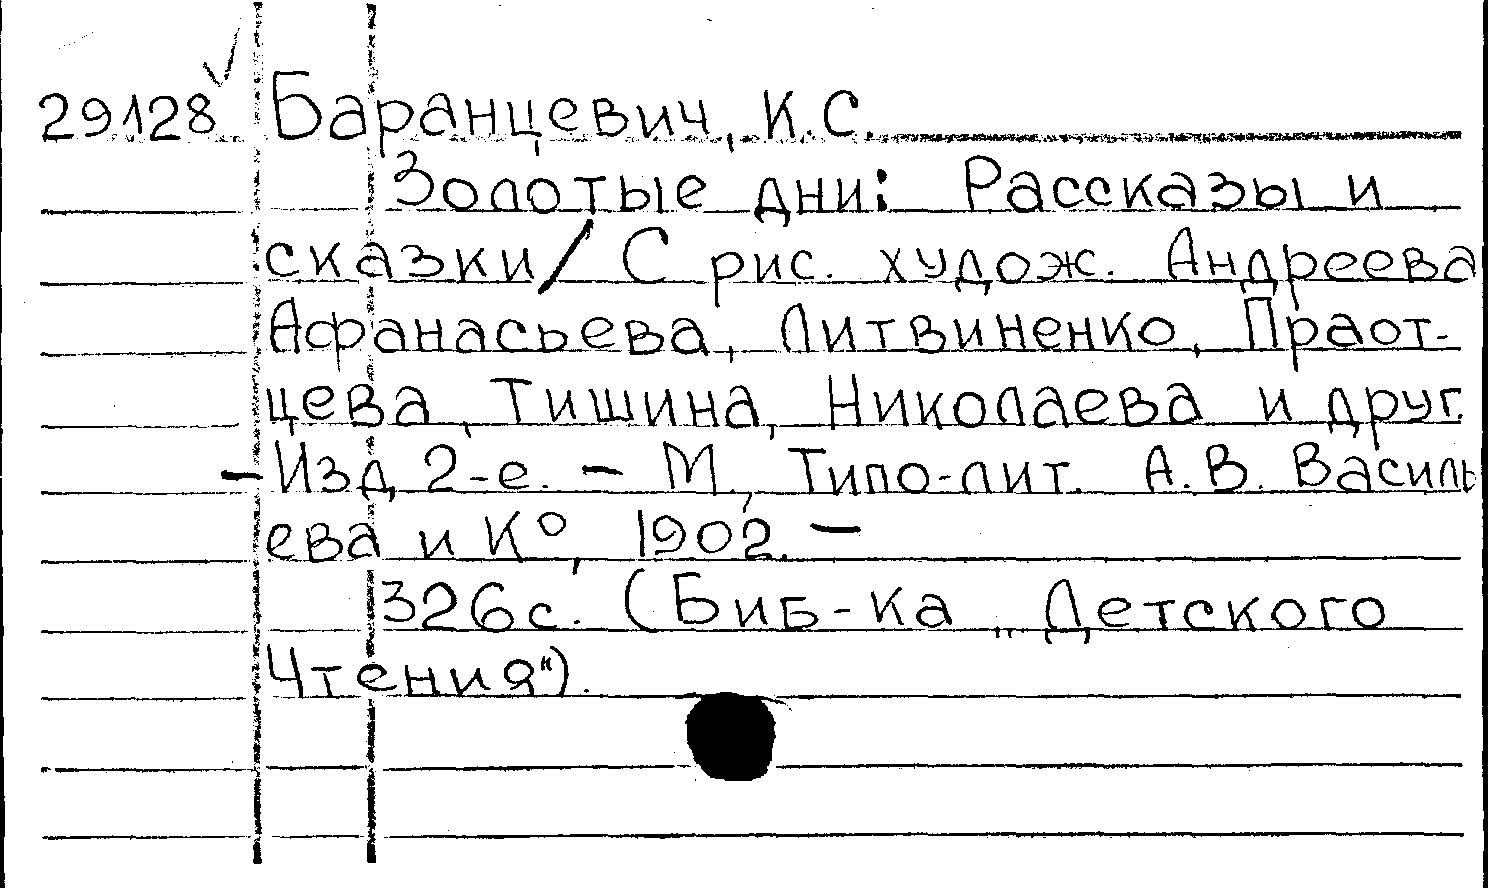 29128 Баранцевич, К.С.
Золотые дни: Рассказы и
сказки/ С рис. худож. Андреева
Афанасьева, Литвиненко, Праот-
цева, Тишина, Николаева и друг.
- Изд, 2-е. - М., Типо-лит. А.В. Василь
ева и К°, 1902. -
326с. (Биб-ка „Детского
Чтения").